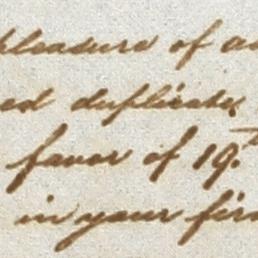 pleasure of a
ed duplicates
favor of 19.
in your firs